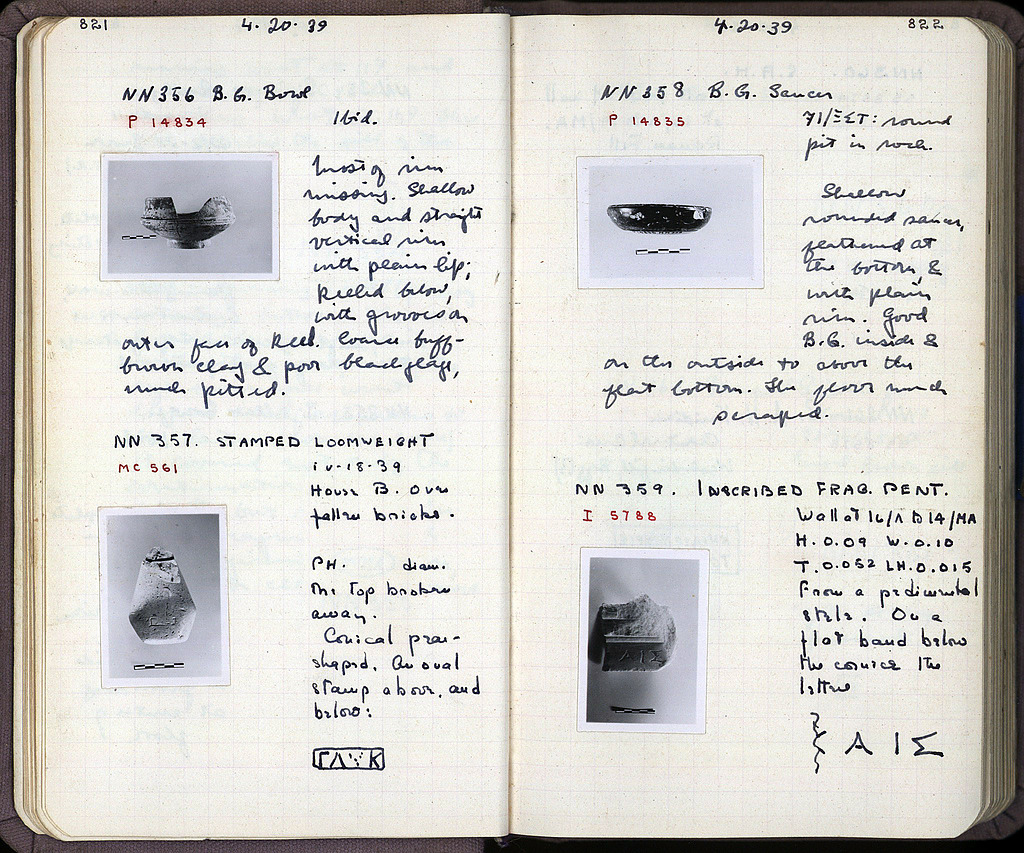 821
4·20·39
NN356 B.G. Bowl
P 14834
Ibid.
Most of rim
missing. Shallow
body and straight
vertical rim
with plain lip;
keeled below,
with grooves on
outer face of keel. Coarse buff-
brown clay & poor black glaze,
much pitted.
NN 357. STAMPED LOOMWEIGHT
MC 561
iv-18-39
House B. Over
fallen bricks.
PH. diam.
The top broken
away.
Conical pear-
shaped. An oval
stamp above, and
below:
822
4-20-39
NN358 B.G. Saucer
P 14835
71/ΞΣΤ: round
pit in rock.
Shallow
rounded saucer,
feathered at
the bottom, &
with plain
rim. Good
B.G. inside &
on the outside to above the
flat bottom. The floor much
scraped.
NN 359. INSCRIBED FRAG. PENT.
I 5788
Wall at 16/Λ D 14/MA
H. 0.09 W. 0.10
T. 0.052 LH. 0.015
From a pedimental
stele. On a
flat band below
the cornice the
letters
Α Ι Σ